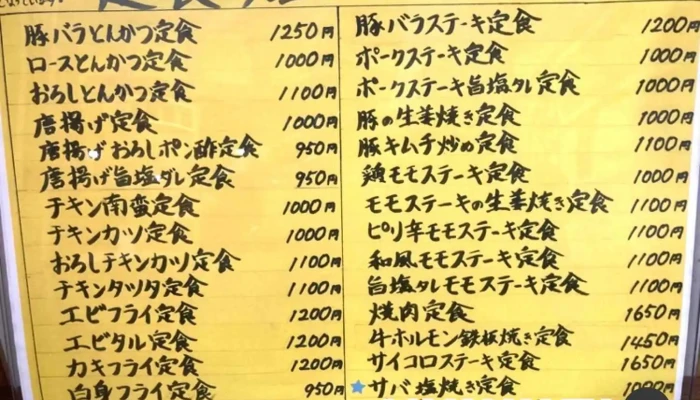 豚バラとんかつ定食 1250円
ロースとんかつ定食 1000円
おろしとんかつ定食 1100円
唐揚げ定食 1000円
唐揚げおろしポン酢定食 950円
唐揚げ旨塩ダレ定食 950円
チキン南蛮定食 1000円
チキンカツ定食 1000円
おろしチキンカツ定食 1100円
チキンタツタ定食 1100円
エビフライ定食 1200円
エビタル定食 1200円
カキフライ定食 1200円
白身フライ定食 950円
豚バラステーキ定食 1200円
ポークステーキ定食 1000円
ポークステーキ旨塩タレ定食 1000円
豚の生姜焼き定食 1000円
豚キムチ炒め定食 1100円
鶏モモステーキ定食 1000円
モモステーキの生姜焼き定食 1100円
ピリ辛モモステーキ定食 1100円
和風モモステーキ定食 1100円
旨塩タレモモステーキ定食 1100円
焼肉定食 1650円
牛ホルモン鉄板焼き定食 1450円
サイコロステーキ定食 1650円
サバ塩焼き定食 1000円